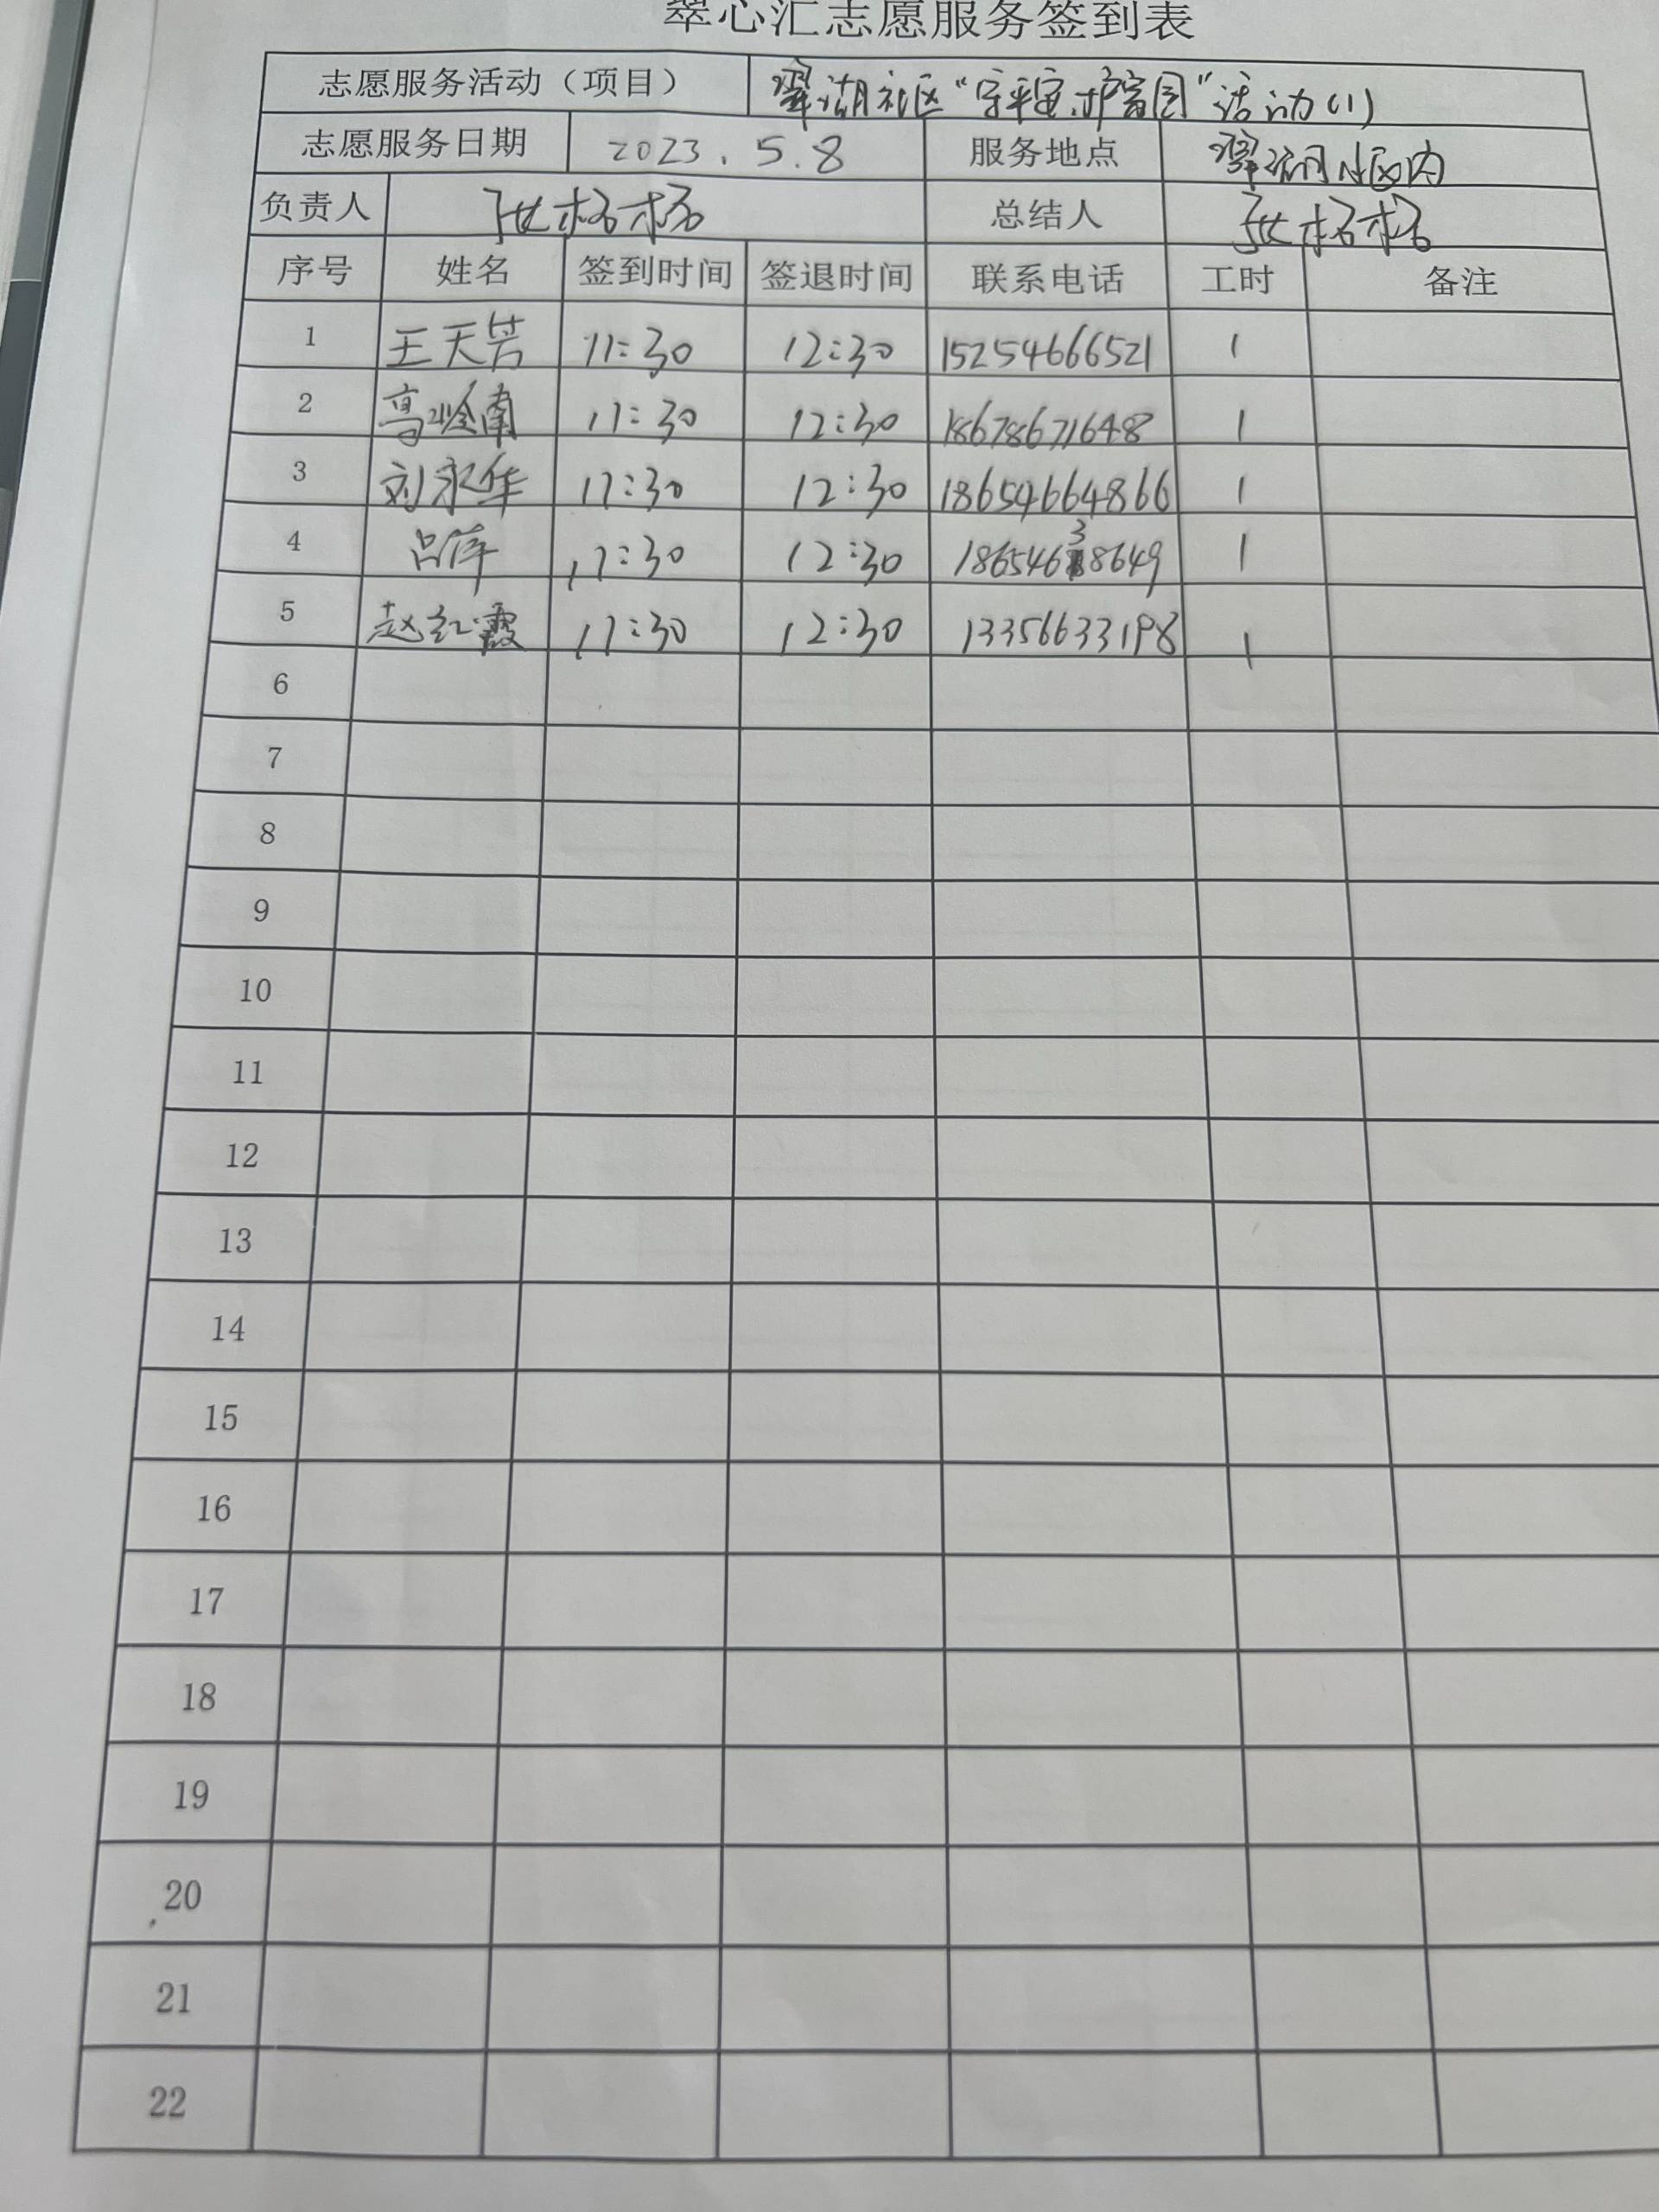 翠心汇志愿服务签到表
志愿服务活动（项目） 翠湖社区“守平安、护富园”活动(1)
志愿服务日期 2023.5.8 服务地点 翠湖小区内
负责人 张格格 总结人 张格格
序号 姓名 签到时间 签退时间 联系电话 工时 备注
1 王天芳 11:30 12:30 15254666521 1
2 高岭南 11:30 12:30 18678671648 1
3 刘永华 11:30 12:30 18654664866 1
4 吕萍 11:30 12:30 18654638649 1
5 赵红霞 11:30 12:30 13356633198 1
6
7
8
9
10
11
12
13
14
15
16
17
18
19
20
21
22